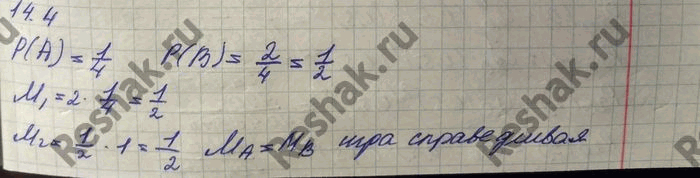 14.4
P(A) = 1/4   P(B) = 2/4 = 1/2
M₁ = 2 · 1/4 = 1/2
M₂ = 1/2 · 1 = 1/2   M_A = M_B игра справедливая
Reshak.ru
Reshak.ru
Reshak.ru
Reshak.ru